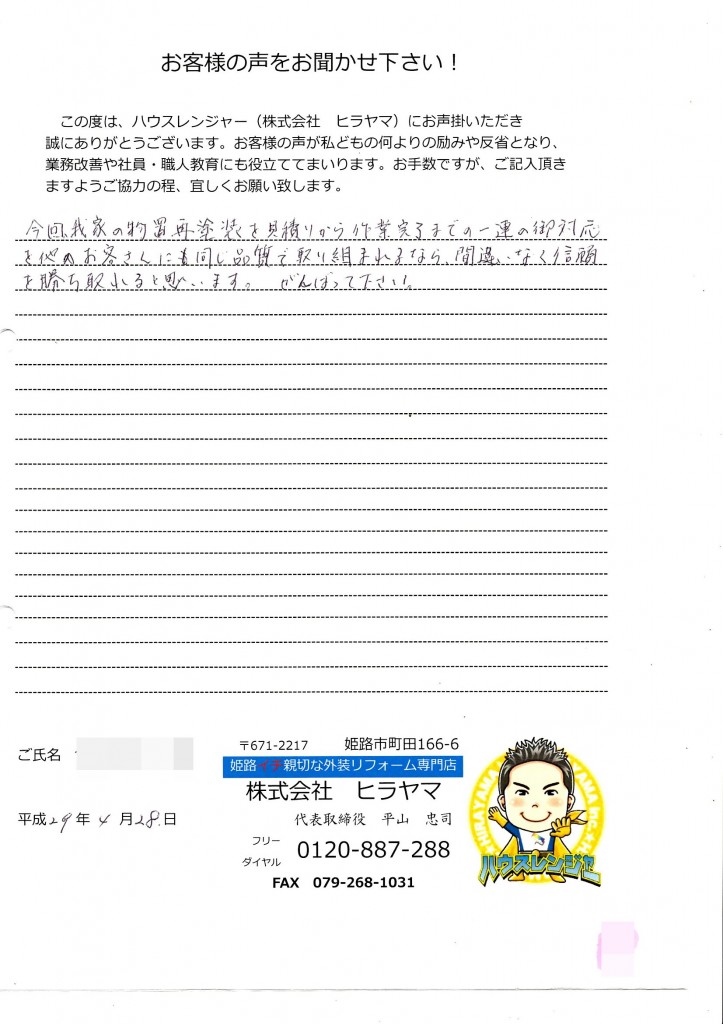 お客様の声をお聞かせ下さい！
この度は、ハウスレンジャー（株式会社　ヒラヤマ）にお声掛いただき
誠にありがとうございます。お客様の声が私どもの何よりの励みや反省となり、
業務改善や社員・職人教育にも役立ててまいります。お手数ですが、ご記入頂き
ますようご協力の程、宜しくお願い致します。
今回、我家の物置再塗装を見積りから作業完了までの一連の御対応
を他のお客さんにも同じ品質で取り組まれるなら、間違いなく信頼
を勝ち取れると思います。　がんばって下さい。
ご氏名
平成29年4月28日
〒671-2217　姫路市町田166-6
姫路イチ親切な外装リフォーム専門店
株式会社　ヒラヤマ
代表取締役　平山　忠司
フリーダイヤル 0120-887-288
FAX　079-268-1031
HIRAYAMA
ハウスレンジャー